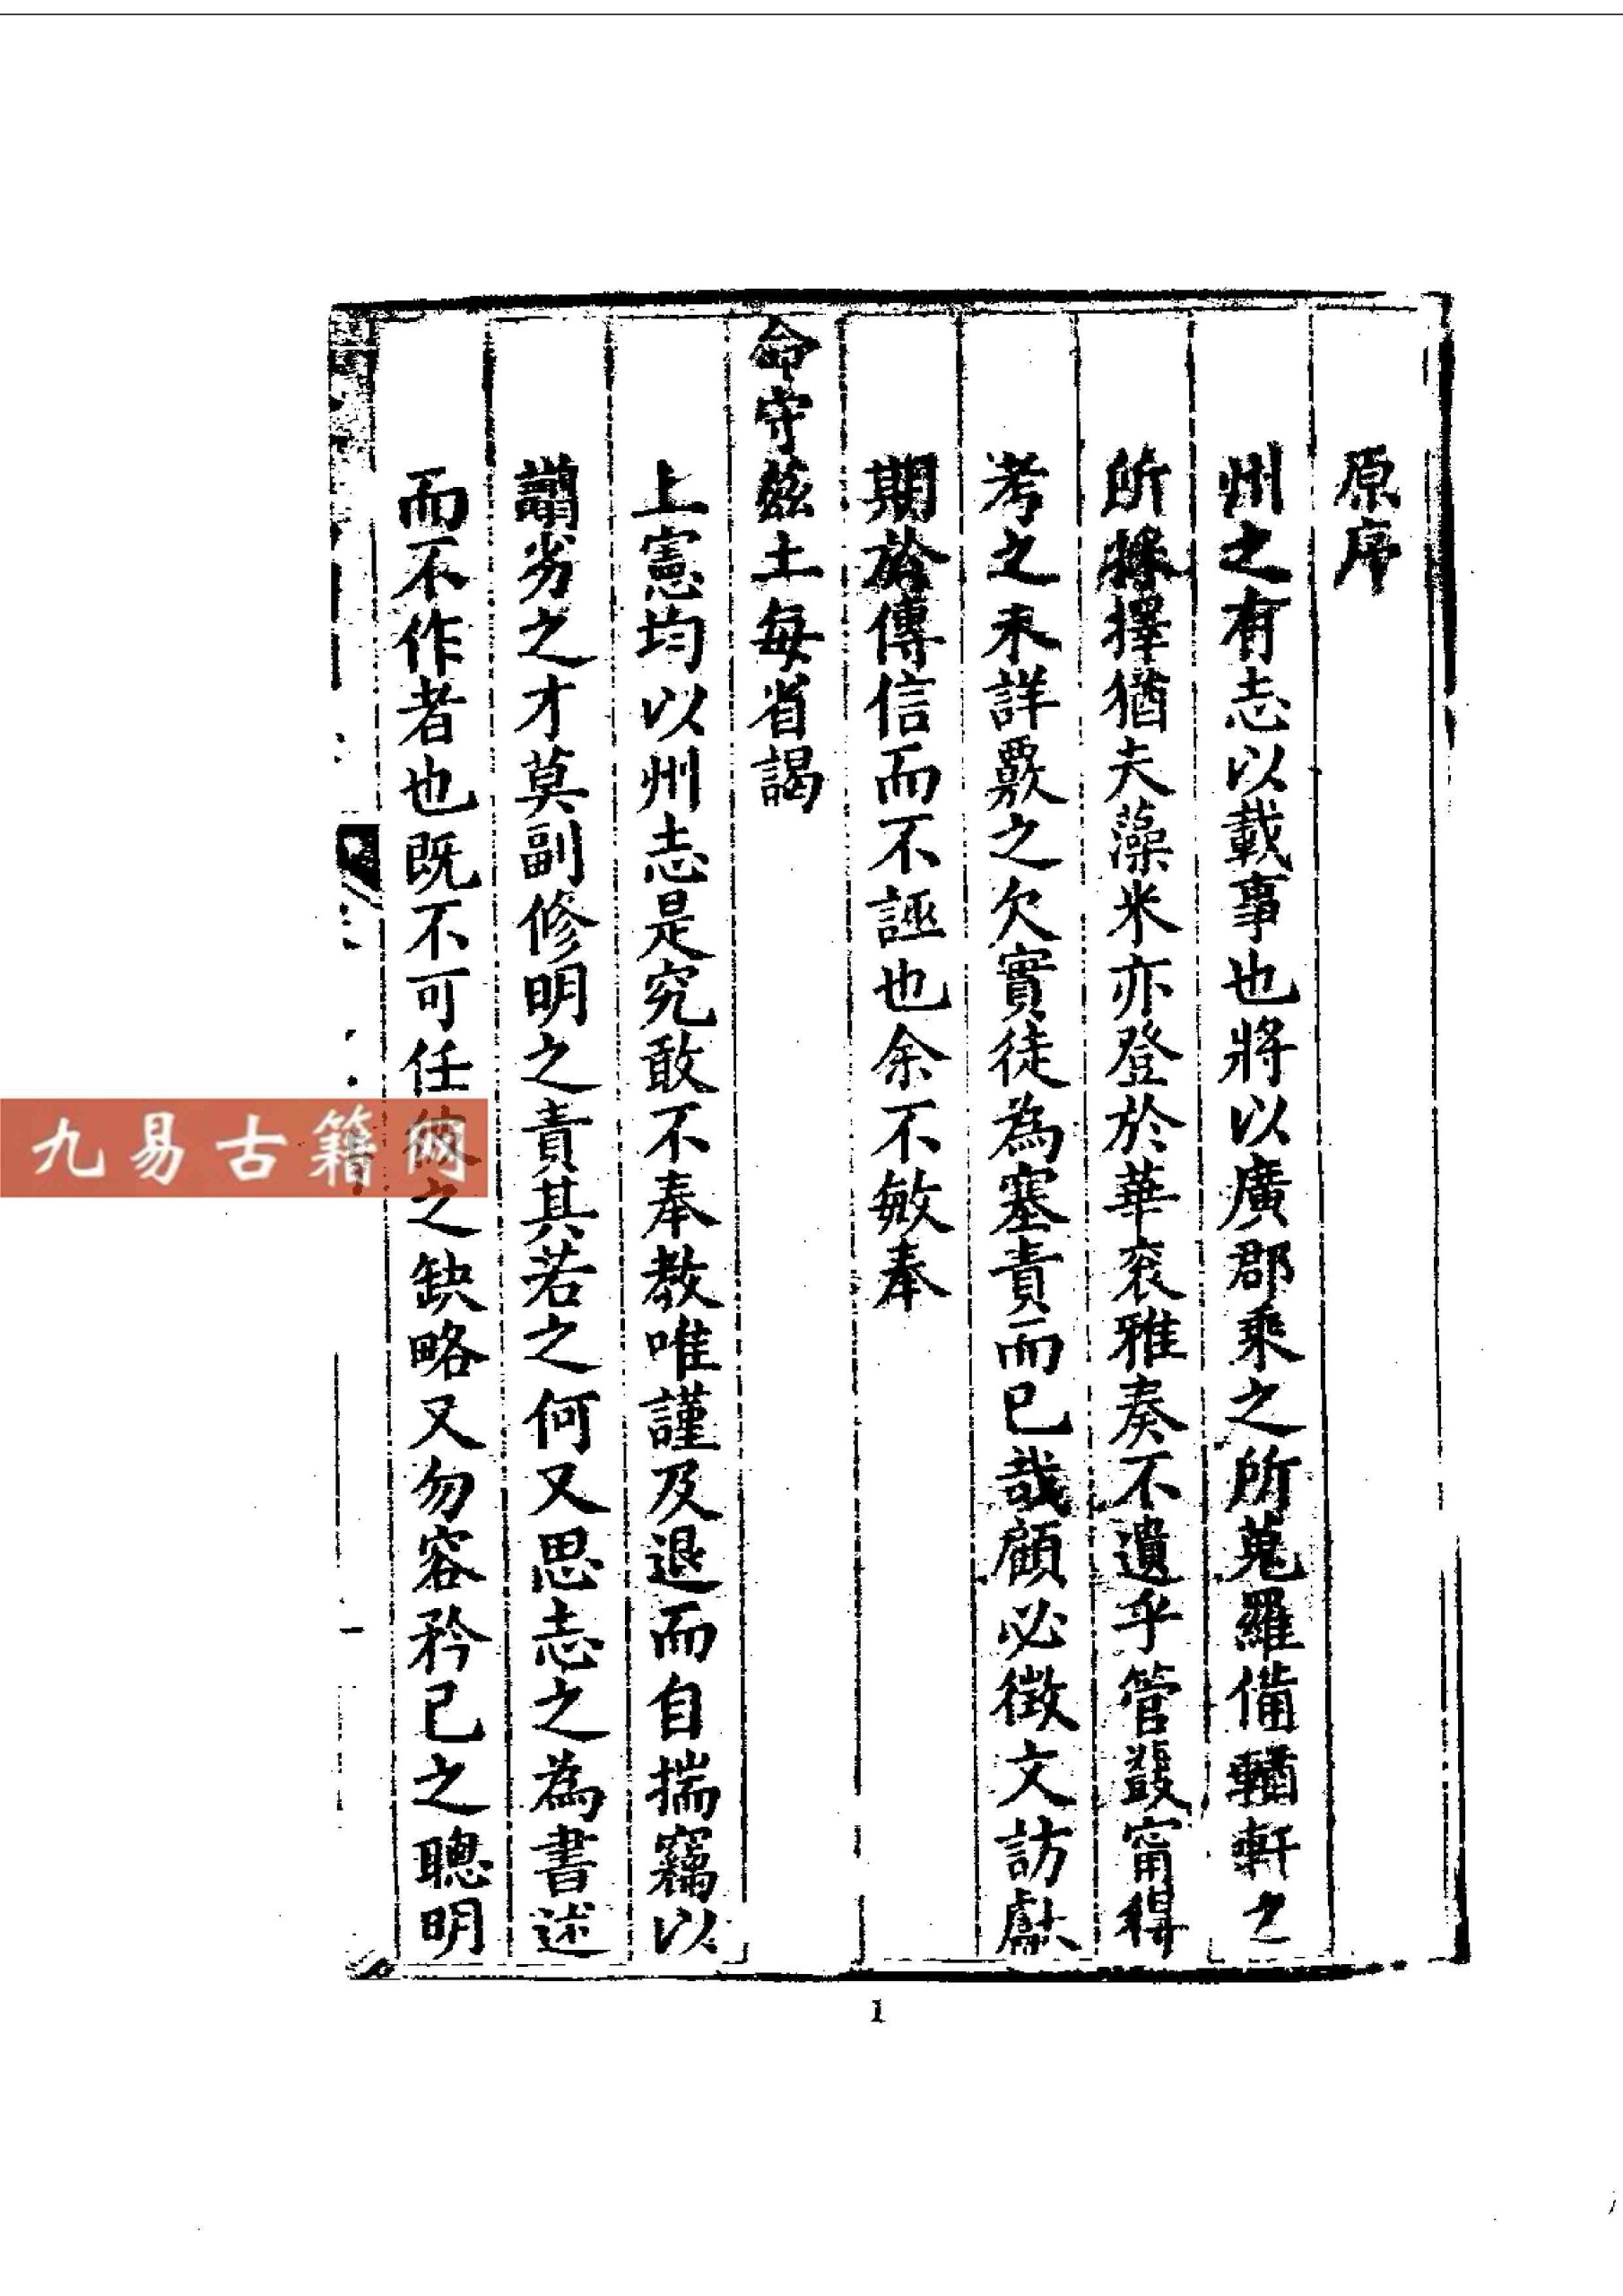 原序
州之有志以載事也將以廣郡乘之所蒐羅備輶軒之
所採擇猶夫藻米亦登於華袞雅奏不遺乎管瑴甯得
考之未詳覈之欠實徒為塞責而已哉顧必徵文訪獻
期於傳信而不誣也余不敏奉
命守兹土每省謁
上憲均以州志是究敢不奉教唯謹及退而自揣竊以
譾劣之才莫副修明之責其若之何又思志之為書述
而不作者也既不可任彼之缺略又勿容矜己之聰明
九易古籍网
1